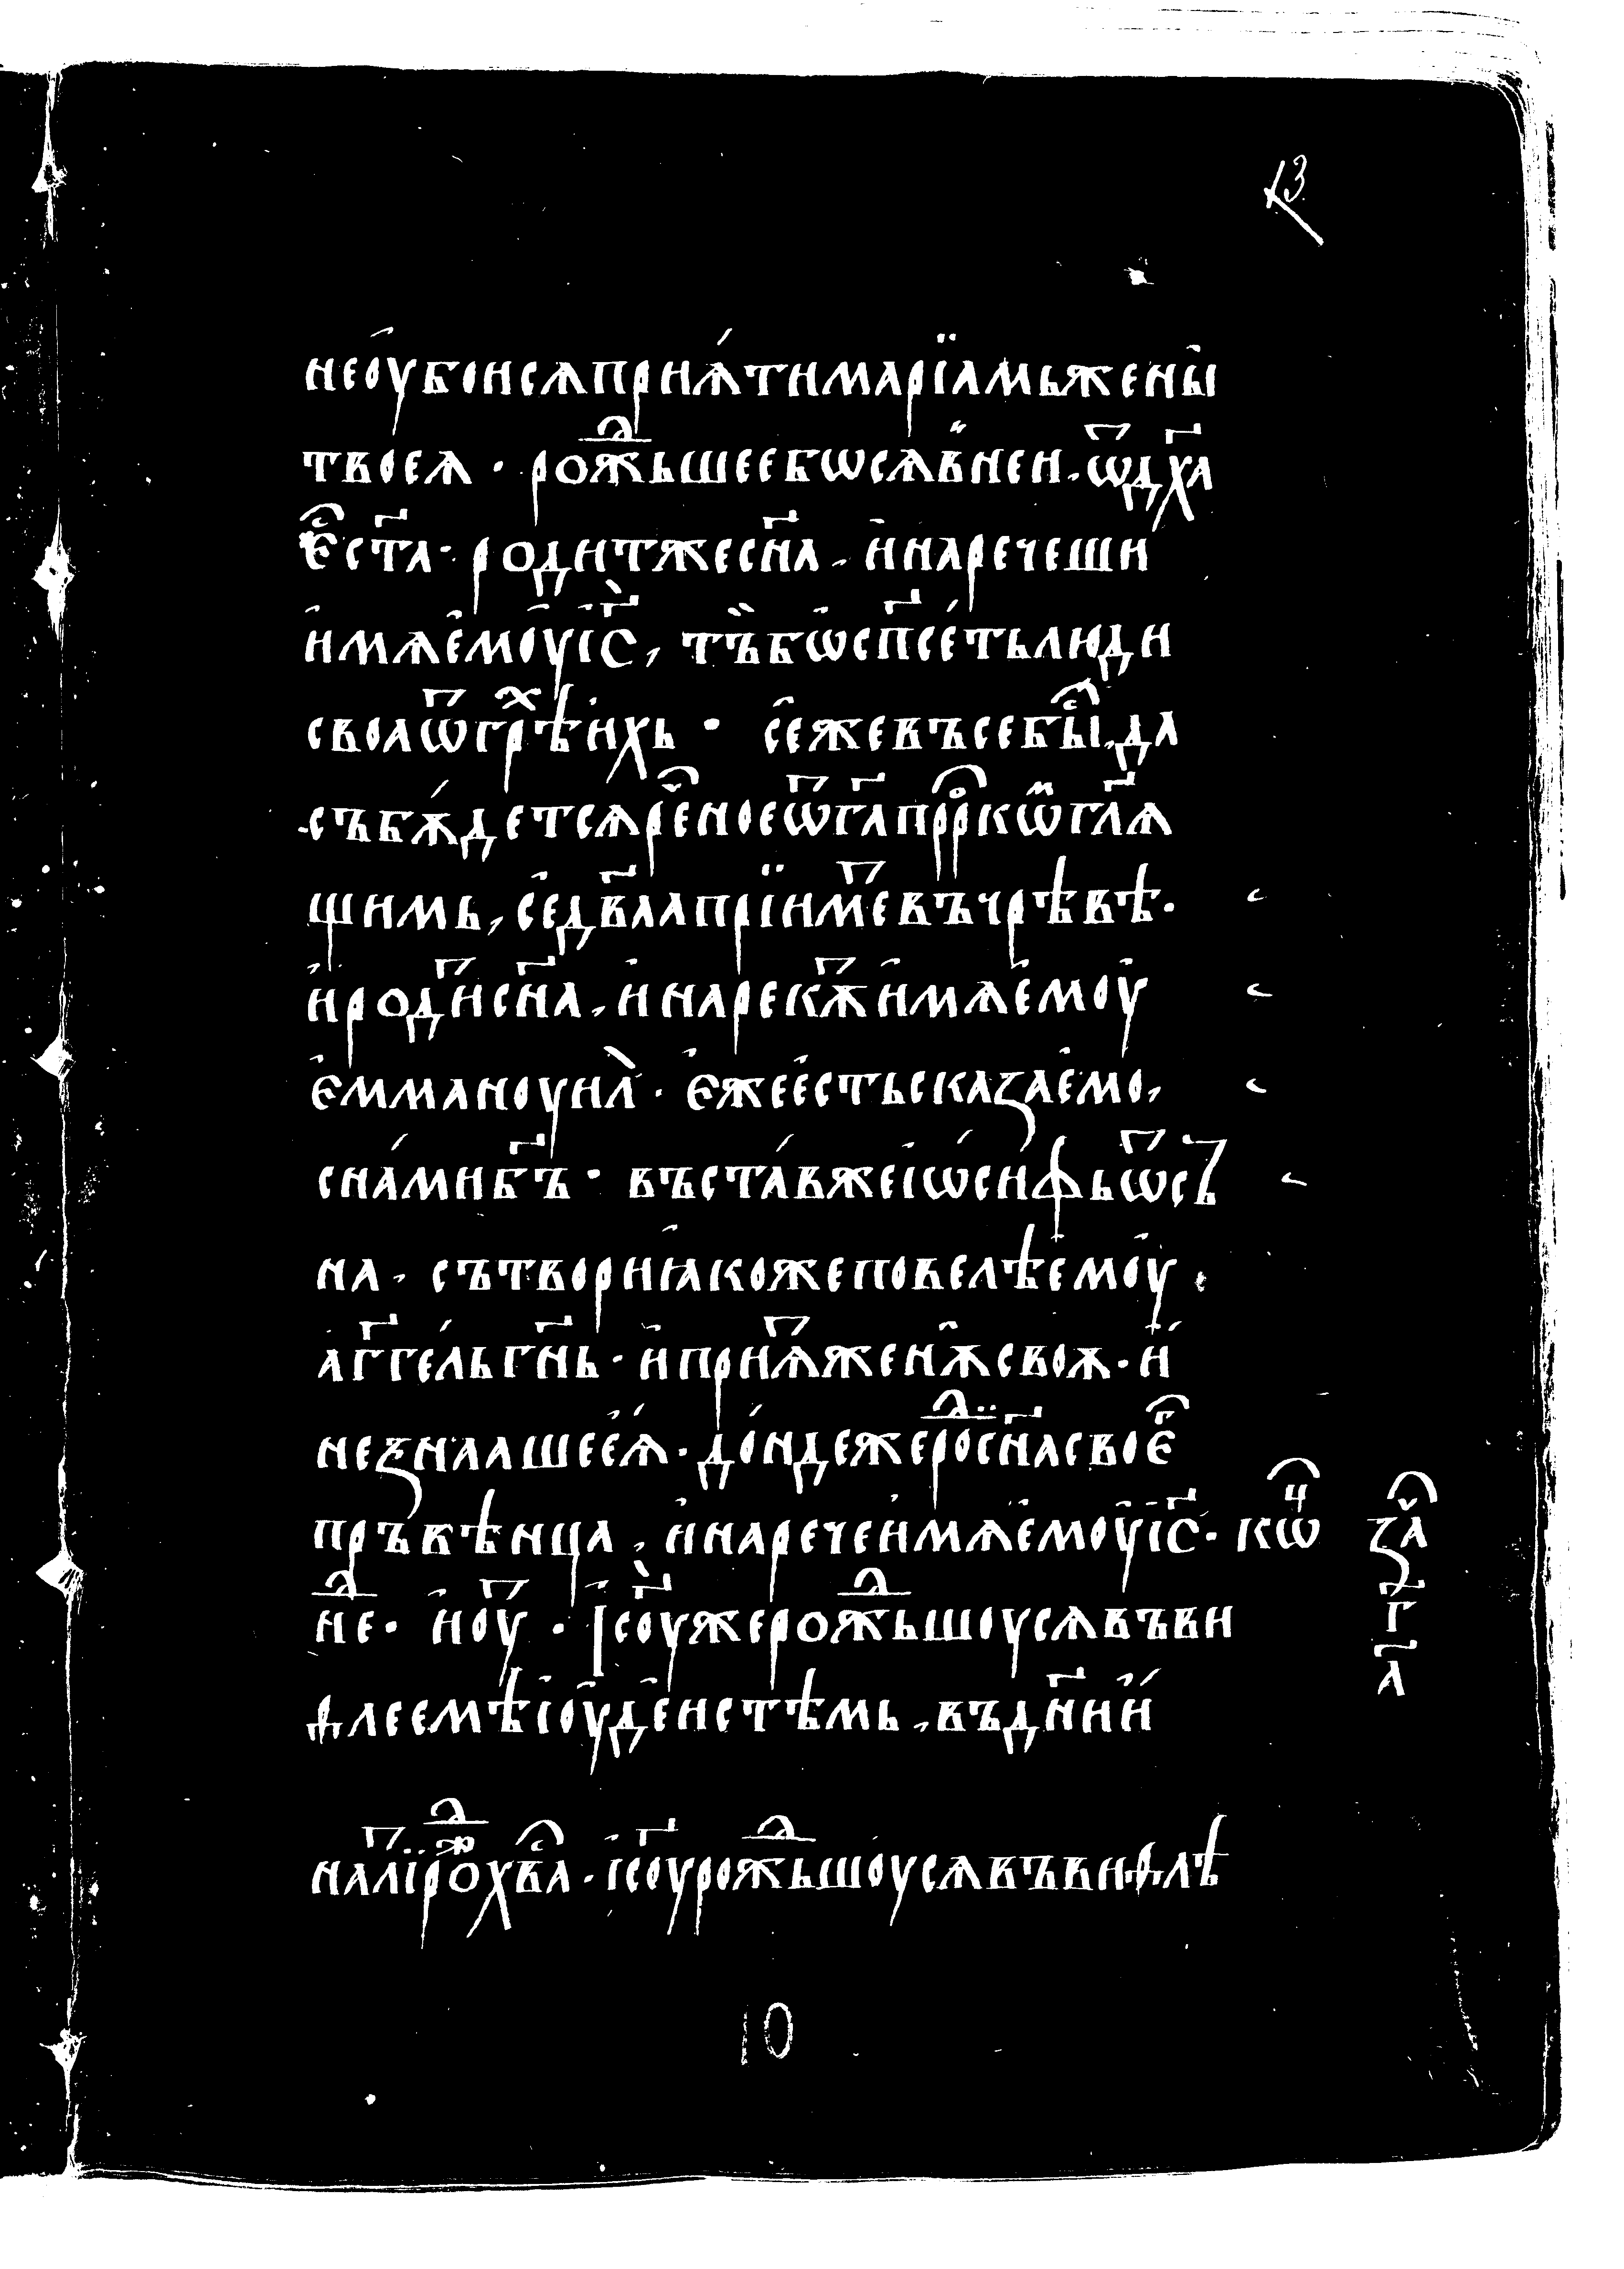 13
не оубои сѧ приѧти марїамь жены
твоеѧ · рождьшее бѡ сѧ в неи · ѿ дх҃а
єст҃а · родит же сн҃а , и наречеши
имѧ ємоу іс҃ , тъ бѡ сп҃сеть люди
своа ѿ грѣхихь · се же въсе быс , да
събѫдет сѧ реное ѿ г҃а прркѡм гл҃ѧ
щимь , се дв҃аа прїимет въ чрѣвѣ ·
и родит сн҃а , и нарекѫт имѧ ємоу
ємманоуил · єже есть сказаемо ,
с нами б҃ъ · въстав же іѡсифь ѿ съ
на , сътвори ꙗкоже повелѣ ємоу
аг҃гель гн҃ь · и приѧт женѫ своѫ · и
не знааше еѧ · дондеже роди сн҃а своего
пръвѣнца , и нарече имѧ ємоу іс҃ · кѡн
нед · и оут · Іс҃оу же рождьшоу сѧ въ ви
ѳлеемѣ іоудеистѣмь , въ дн҃и и
зач
г
а
на лїт рож хв҃а · іс҃оу рождьшоу сѧ въ виѳлѣ
10